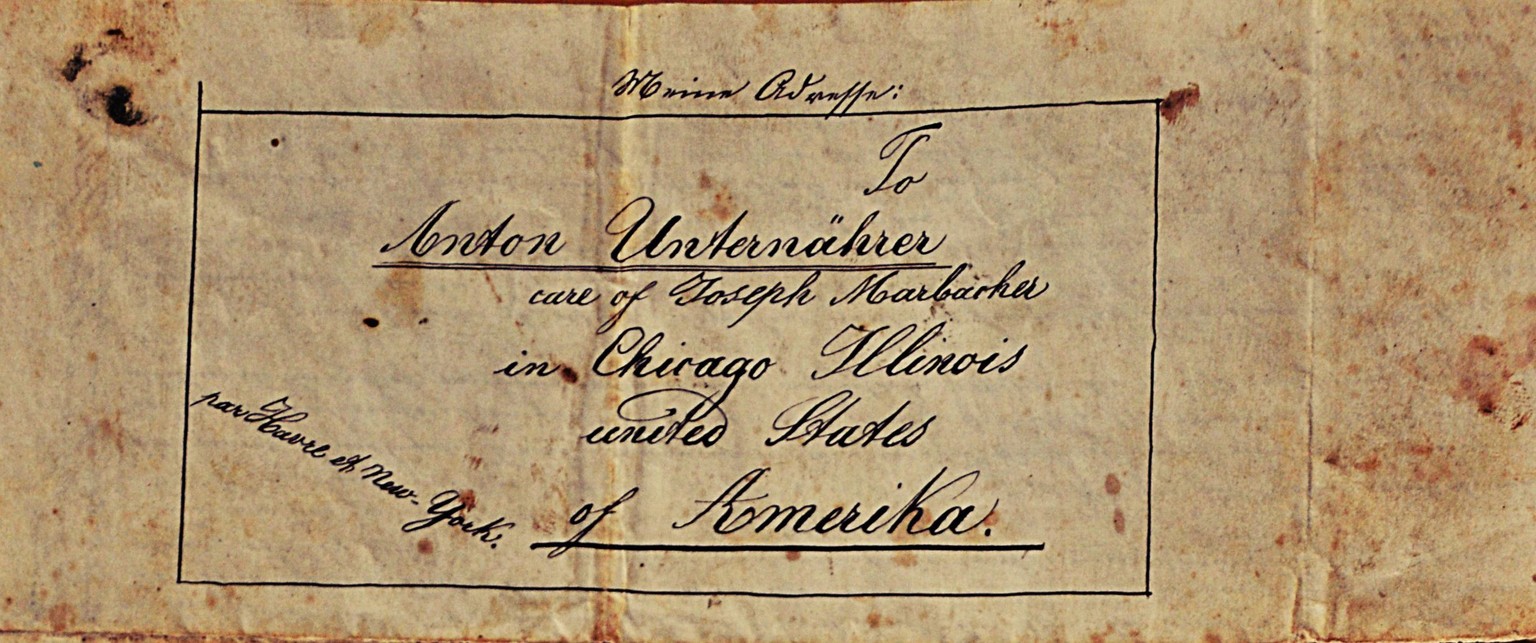 Meine Adresse:
To
Anton Unternährer
care of Joseph Marbacher
in Chicago Illinois
united States
of Amerika.
par Havre et New-York.